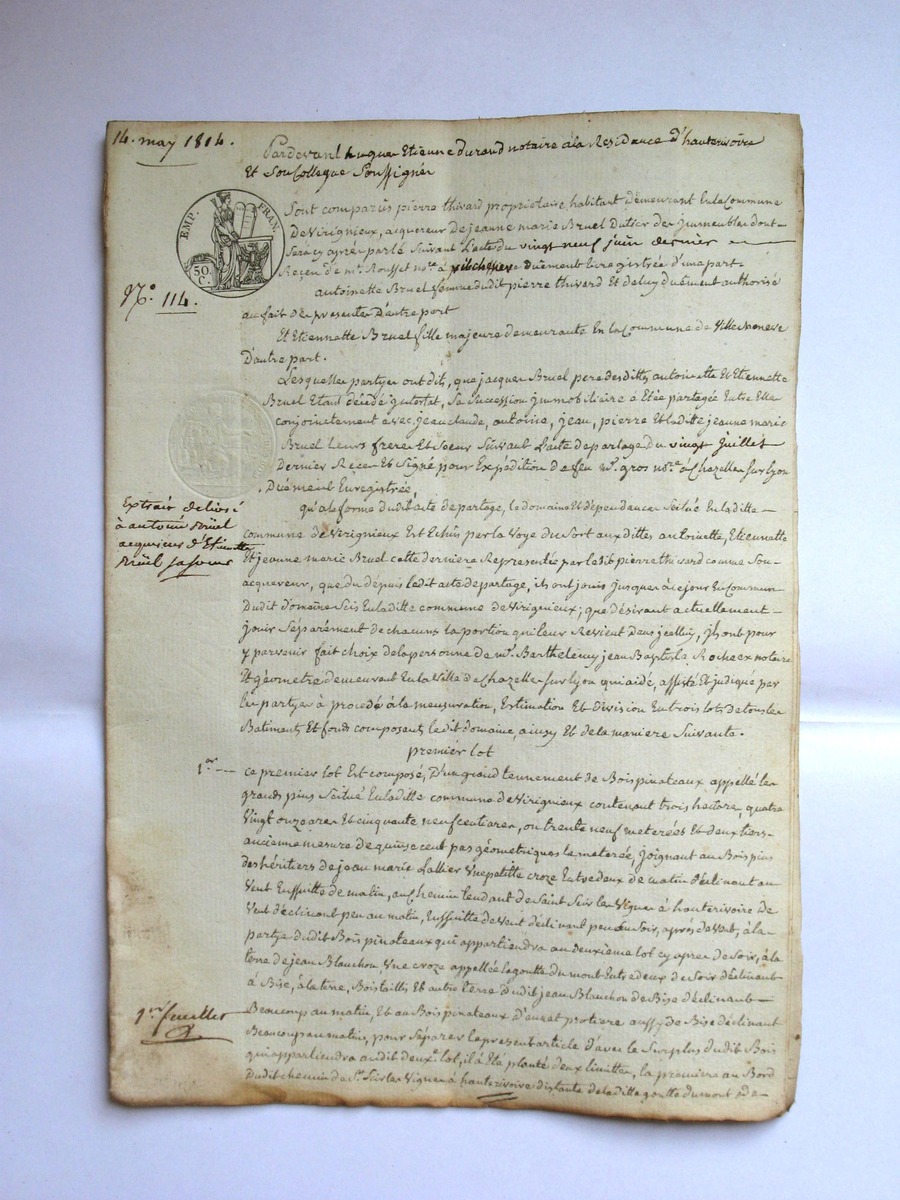 14. may 1814.
Pardevant Etienne durand notaire à la Residance d'hauterivoire
Et Son Collegue Soussignés
EMP. FRAN.
50. C.
N.º 114.
Sont comparus pierre thivard propriétaire habitant demeurant En la Commune
De Virignieux, acquereur De jeanne marie Bruel Dutser des Immeubles dont
Sera cy aprés parlé Suivant L'acte du vingt neuf juin dernier
Reçeu de m.e Rousset no.re à Duement Enregistrée d'une part
antoinette Bruel femme dudit pierre thivard Et de luy duement authorisé
au fait des presentes D'autre part
Et Etiennette Bruel fille majeure demeurante En la Commune de Villecheneve
D'autre part.
Lesquelles partyes ont dits, que jacques Bruel pere desdittes antoinette Et Etiennette
Bruel Etant décédé intestat, Sa Succession immobiliaire à Etée partagée Entre Elles
conjointement avec jean claude, antoine, jean, pierre Et laditte jeanne marie
Bruel Leurs frere Et Soeur Suivant L'acte de partage du vingt juillet
Dernier Reçeu Et Signé pour Expédition de feu m.e gros no.re à Chazelles Sur lyon
Duement Enregistrée,
qu'à la forme dudit acte de partage, le domaine Et dépendances Scitué En laditte
commune de Virignieux Est Echus par la Voye du Sort auxdittes antoinette, Etiennette
Et jeanne marie Bruel cette derniere Représentée par ledit pierre thivard comme Son
acquereur, que du depuis ledit acte de partage, ils ont jouis jusques à ce jour En Commun
Dudit domaine Scis En laditte commune de Virignieux; que désirant actuellement
jouir Séparément de chacuns la portion qui leur Revient Dans jcelluy, jls ont pour
y parvenir fait choix de la personne de m.e Barthelemy jean Baptiste Rochaex notaire
Et géometre demeurant En la Ville de Chazelles sur lyon qui aidé, assisté Et jndiqué par
les partyes à procedé à la mensuration, Estimation Et division En trois lots, de tous les
Batiments Et fonds composants ledit domaine, ainsy Et de la maniere Suivante.
Extrait delivré
à antoine Brüel
acquereur d'Etiennette
Brüel sa soeur
premier lot
1.er ce premier lot Est composé, D'un grand tennement de Bois pinateaux appellé les
grands pins Scitué En laditte commune de Virignieux contenant trois hectares, quatre
Vingt onze ares Et cinquante neuf centiares, ou trente neuf meterées Et deux tiers
ancienne mesure de quinse cent pas géometriques la meterée, joignant au Bois pins
des héritiers de jean marie Lallier Une petitte croze Entredeux de matin déclinant au
Vent Ensuitte de matin, au Chemin tendant de Saint Scir les Vignes à hauterivoire De
Vent déclinant peu au matin, Ensuitte de Vent déclinant peu au Soir, après de Vent, à la
partye dudit Bois pinateaux qui appartiendra au deuxieme lot cy après De Soir, à la
terre de jean Blanchon Une croze appellée la goutte du mont Entredeux de Soir déclinant
à Bise, à la terre, Bois taillis Et autre terre dudit jean Blanchon de Bise déclinant
Beaucoup au matin, Et au Bois pinateaux aussy de Bise déclinant
Beaucoup au matin, pour Séparer le présent article d'avec le Surplus dudit Bois
qui appartiendra audit deux.e lot, il à Eté planté deux limittes, la premiere au Bord
Dudit chemin de S.t Scir les Vignes à hauterivoire distante de laditte goutte du mont de
1.er feuillet